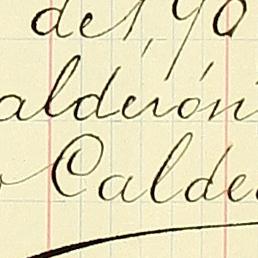 de 190
alderón
Calde